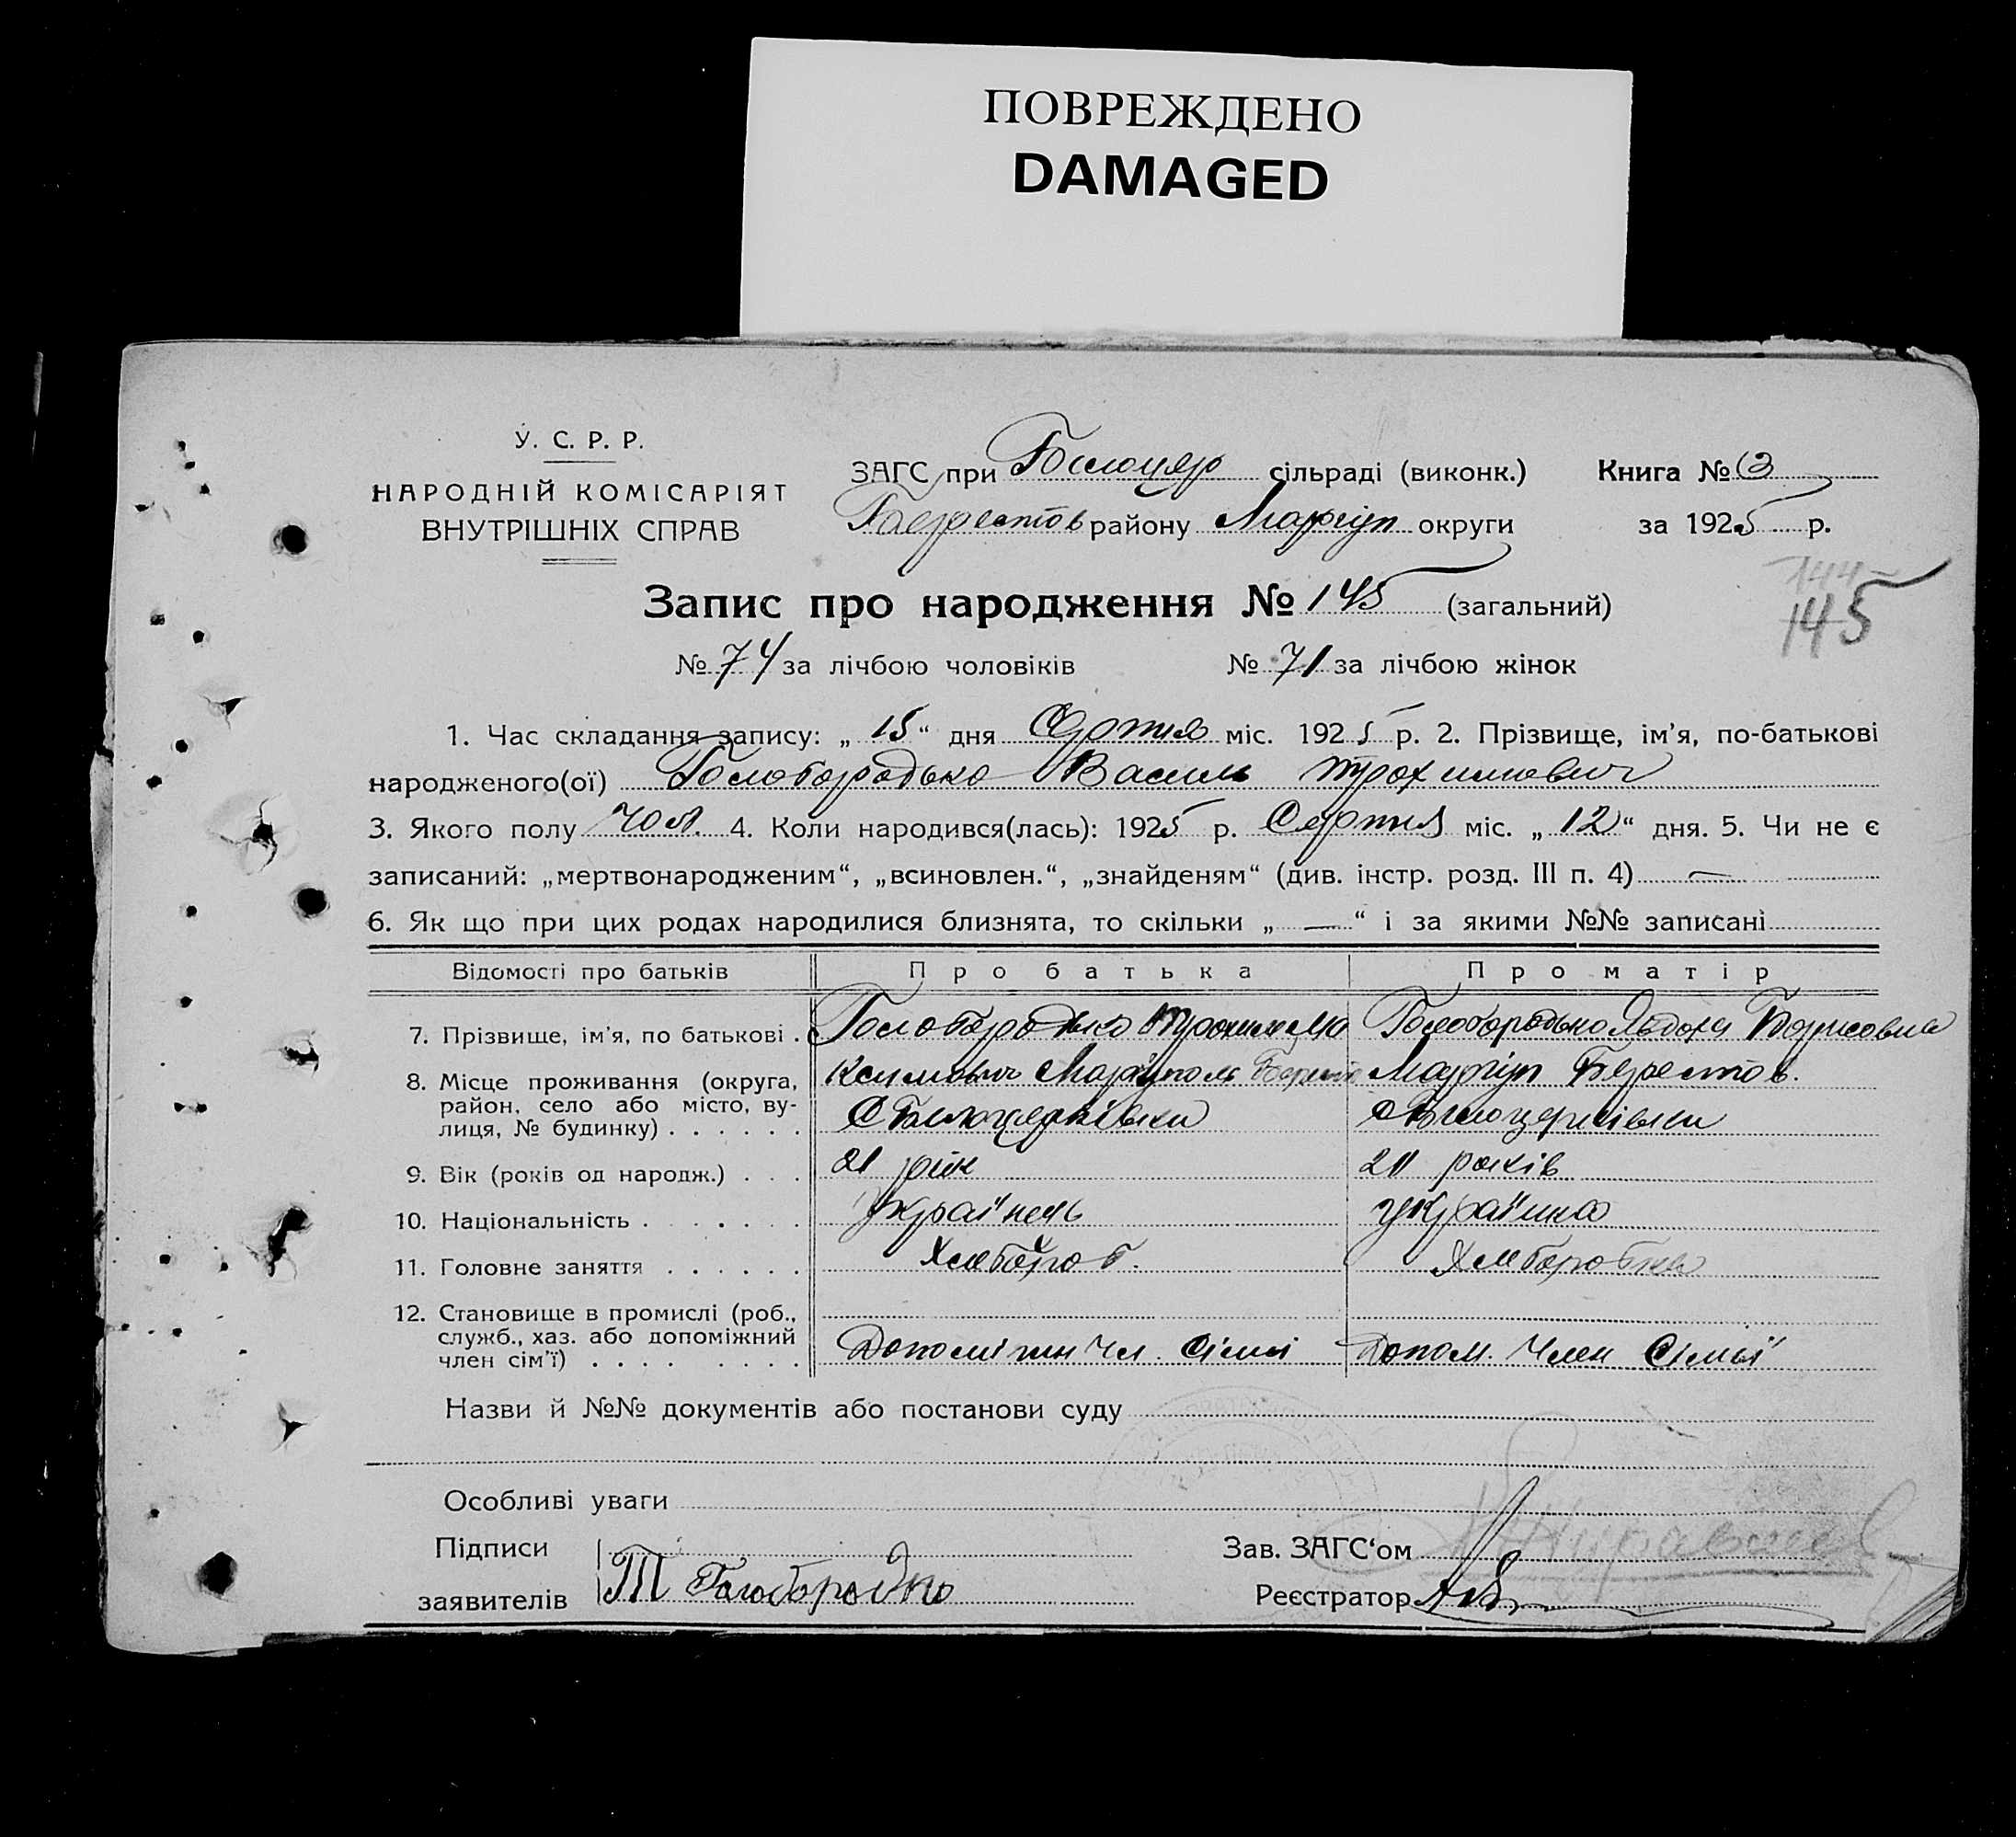 ПОВРЕЖДЕНО
DAMAGED
У. С. Р. Р.
НАРОДНІЙ КОМІСАРІЯТ
ВНУТРІШНІХ СПРАВ
ЗАГС при Білоцер сільраді (виконк.) Книга № 3
Берестов району Маріуп округи за 1925 р.
Запис про народження № 145 (загальний)
144
145
№ 74 за лічбою чоловіків № 71 за лічбою жінок
1. Час складання запису: „ 15 “ дня Серпня міс. 1925 р. 2. Прізвище, ім'я, по-батькові
народженого(ої) Голобородько Василь Трохимович
3. Якого полу чол. 4. Коли народився(лась): 1925 р. Серпня міс. „ 12 “ дня. 5. Чи не є
записаний: „мертвонародженим“, „всиновлен.“, „знайденям“ (див. інстр. розд. III п. 4) —
6. Як що при цих родах народилися близнята, то скільки „ — “ і за якими №№ записані
Відомості про батьків Про батька Про матір
7. Прізвище, ім'я, по батькові . Голобородько Трохим Ма Голобородько Явдоха Борисовна
8. Місце проживання (округа, ксимович Маріуполь Берест Маріуп Берестов.
район, село або місто, ву-
лиця, № будинку) . . . . . . С Білоцерківки с Білоцерківки
9. Вік (років од народж.) . . . 21 рік 20 років
10. Національність . . . . . . Українець українка
11. Головне заняття . . . . . . Хлібороб. Хліборобка
12. Становище в промислі (роб.,
служб., хаз. або допоміжний
член сім'ї) . . . . . . . . Допоміжн чл. Сімьі Допом. Член Сімьї
Назви й №№ документів або постанови суду
Особливі уваги
Підписи
заявителів Т Голобородко
Зав. ЗАГС‘ом
Реєстратор